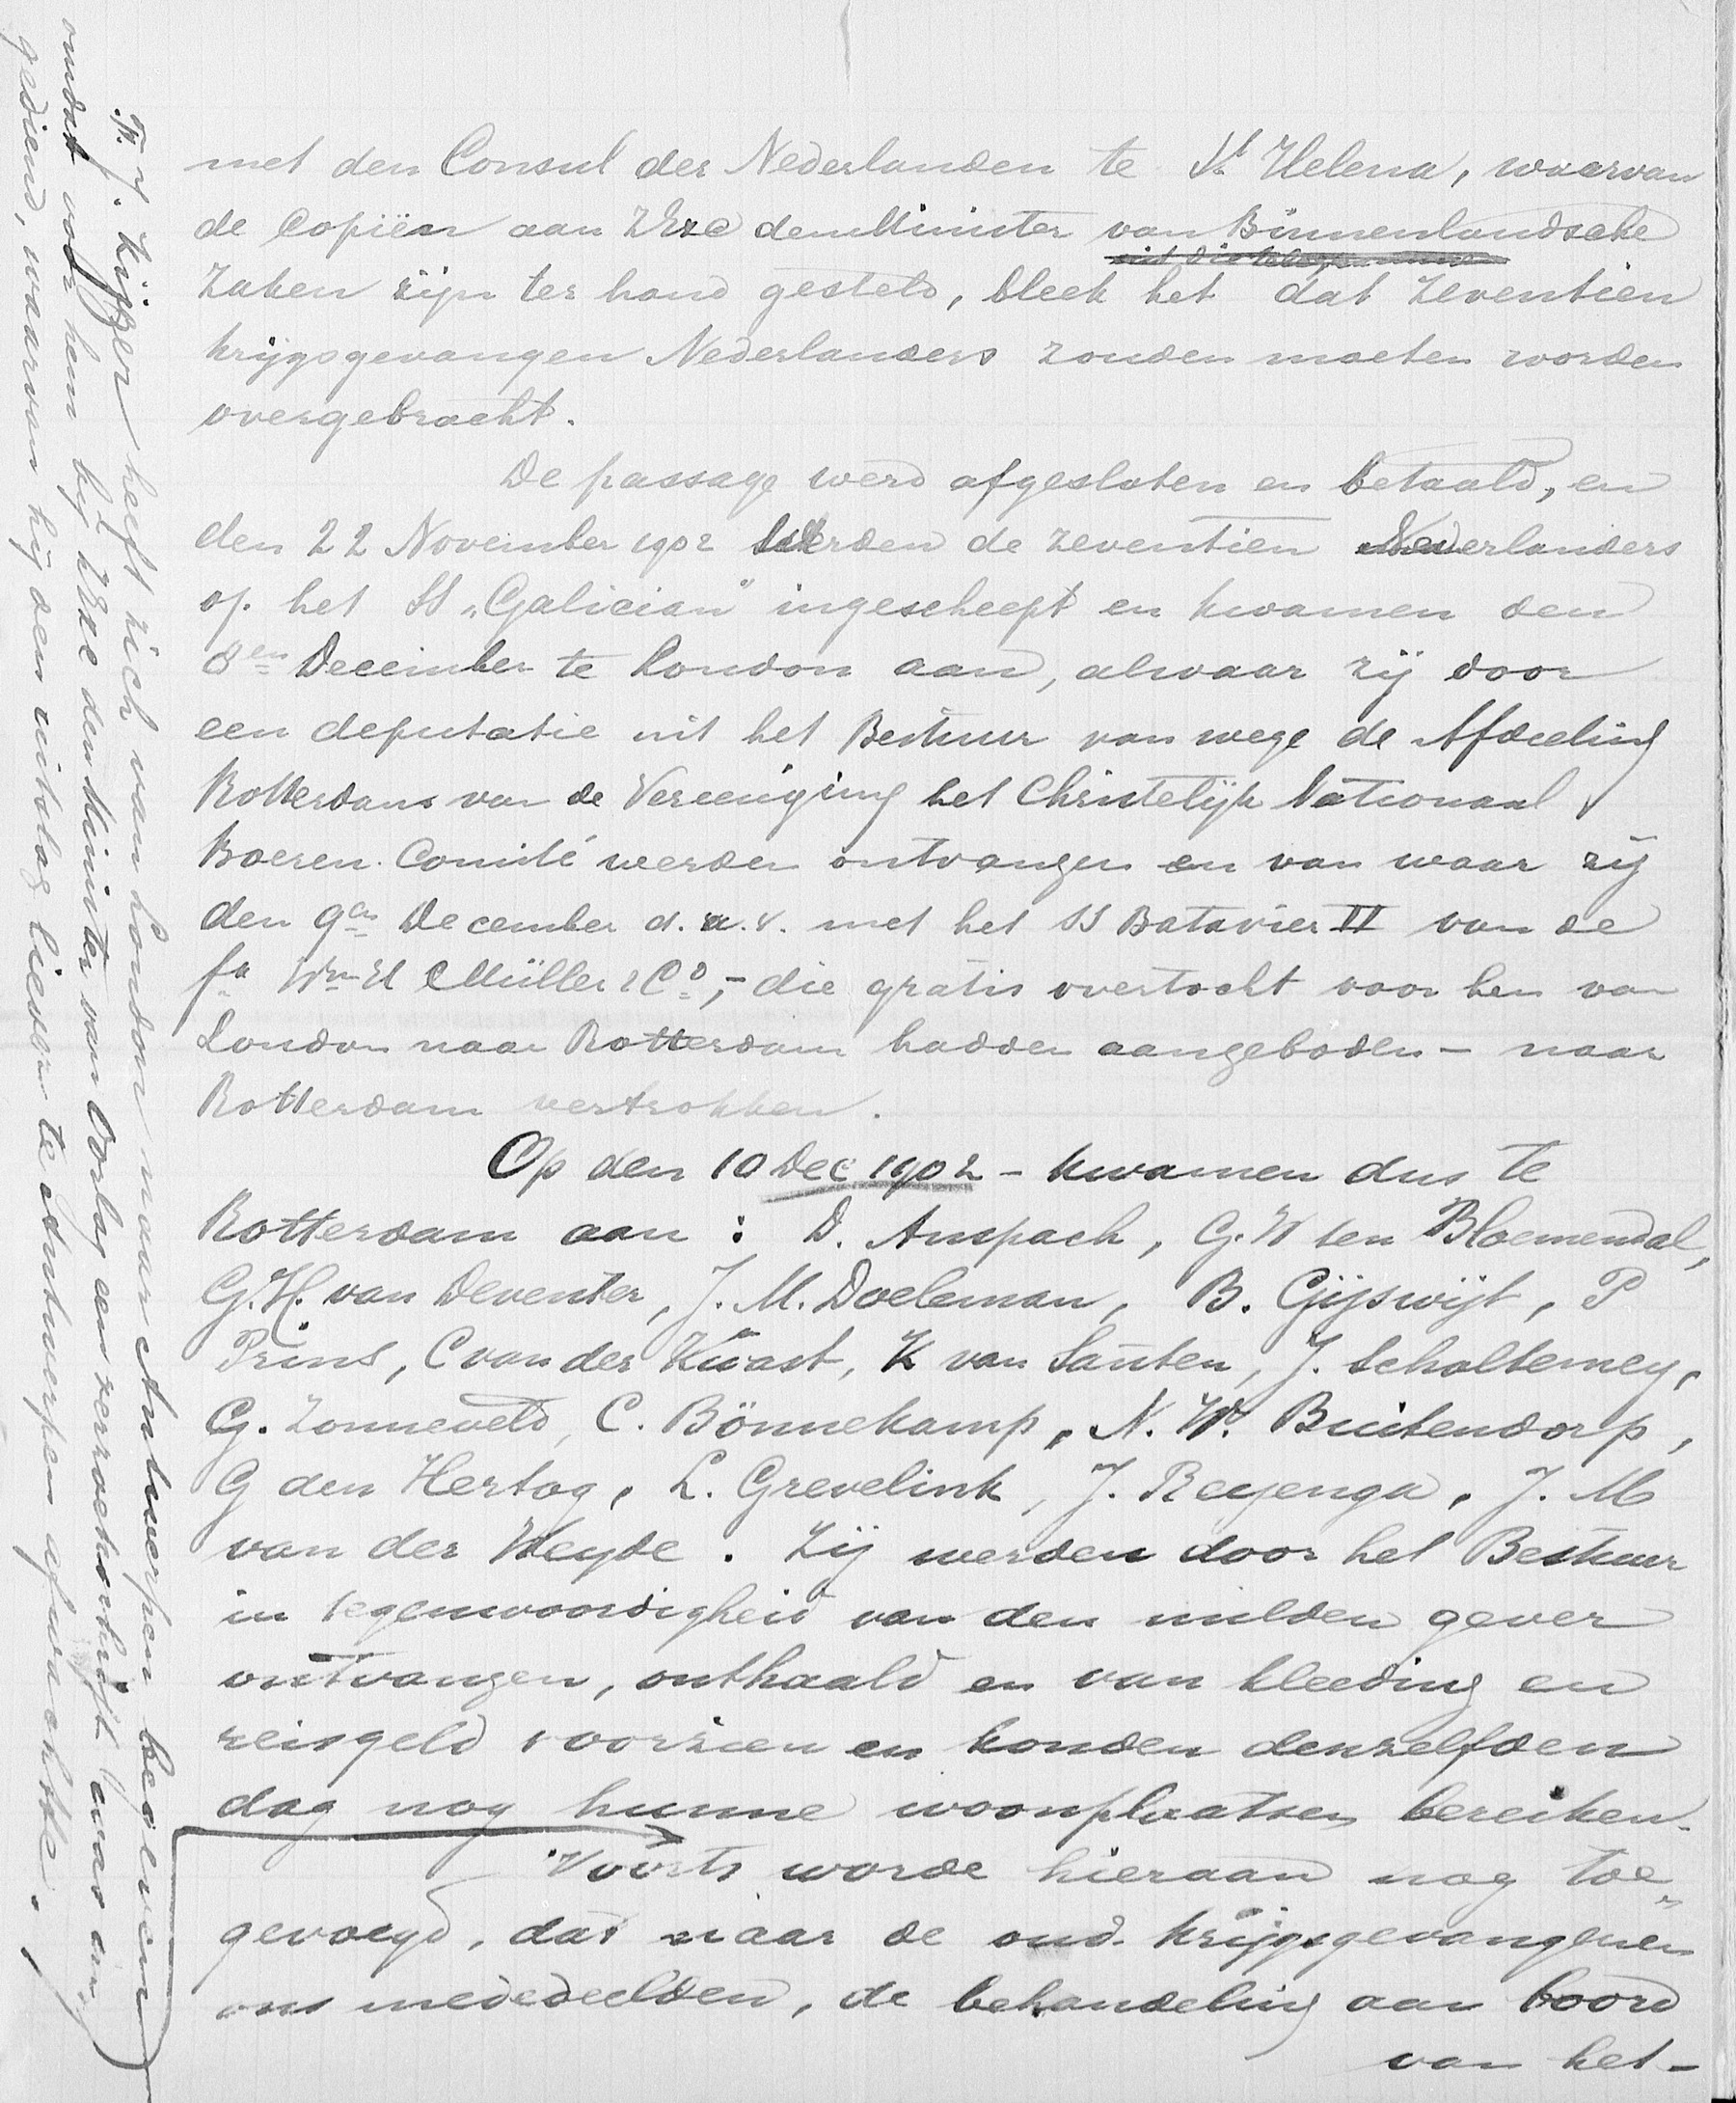 met den Consul der Nederlanden te St Helena, waarvan
de Copiën aan ZExc den Minister van Binnenlandsche
Zaken zijn ter hand gesteld, bleek het dat zeventien
krijgsgevangen Nederlanders zouden moeten worden
overgebracht.
De passage werd afgesloten en betaald, en
den 22 November 1902 werden de zeventien Nederlanders
op het SS „Galician” ingescheept en kwamen den
8en December te London aan, alwaar zij door
een deputatie uit het Bestuur van wege de Afdeeling
Rotterdam van de Vereeniging het Christelijk Nationaal
Boeren Comité werden ontvangen en van waar zij
den 9en December d.a.v. met het SS Batavier II van de
fa Wm H Müller & Co, – die gratis overtocht voor hen van
London naar Rotterdam hadden aangeboden – naar
Rotterdam vertrokken.
Op den 10 Dec 1902 – kwamen dus te
Rotterdam aan: D. Anspach, G.W ten Bloemendal,
G.H. van Deventer, J.M. Doeleman, B. Gijswijt, P
Prins, C van der Kwast, K van Santen, J. Scholtemey,
G. Zonneveld, C. Bönnekamp, N.W. Buitendorp,
G den Hertog, L. Grevelink, J. Reyenga, J. M
van der Heyde. Zij werden door het Bestuur
in tegenwoordigheid van den milden gever
ontvangen, onthaald en van kleeding en
reisgeld voorzien en konden denzelfden
dag nog hunne woonplaatsen bereiken.
Voorts worde hieraan nog toe„
gevoegd, dat naar de oud krijgsgevangenen
ons mededeelden, de behandeling aan boord
van het –
F. J. Kijzer heeft zich van London naar Antwerpen begeven
omdat voor hem bij ZExc den Minister van Oorlog een verzoekschrift was in„
gediend, waarvan hij den uitslag liever te Antwerpen afwachtte.